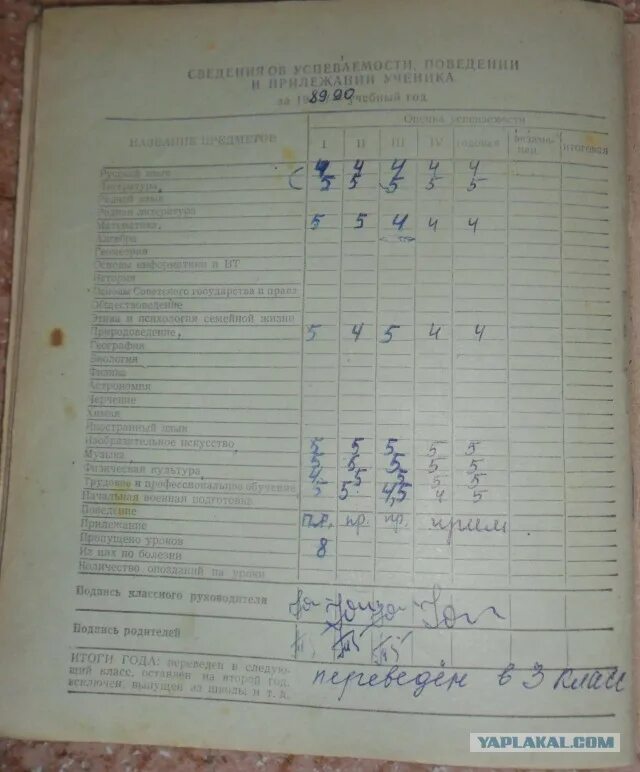 СВЕДЕНИЯ ОБ УСПЕВАЕМОСТИ, ПОВЕДЕНИИ
И ПРИЛЕЖАНИИ УЧЕНИКА
за 19 89-90 учебный год
НАЗВАНИЕ ПРЕДМЕТОВ
Оценка успеваемости
I II III IV годовая экзамен. итоговая
Русский язык 4 4 4 4 4
Литература 5 5 5 5 5
Родной язык
Родная литература
Математика 5 5 4 4 4
Алгебра
Геометрия
Основы информатики и ВТ
История
Основы Советского государства и права
Обществоведение
Этика и психология семейной жизни
Природоведение 5 4 5 4 4
География
Биология
Физика
Астрономия
Черчение
Химия
Иностранный язык
Изобразительное искусство 5 5 5 5 5
Музыка 5 5 5 5 5
Физическая культура 4 5 5 5 5
Трудовое и профессиональное обучение 5 5 4,5 4 5
Начальная военная подготовка
Поведение
Прилежание пр. пр. пр. прим
Пропущено уроков
Из них по болезни 8
Количество опозданий на уроки
Подпись классного руководителя
Подпись родителей
ИТОГИ ГОДА: переведен в следую-
щий класс, оставлен на второй год,
исключен, выпущен из школы и т. д.
переведён в 3 класс
YAPLAKAL.COM